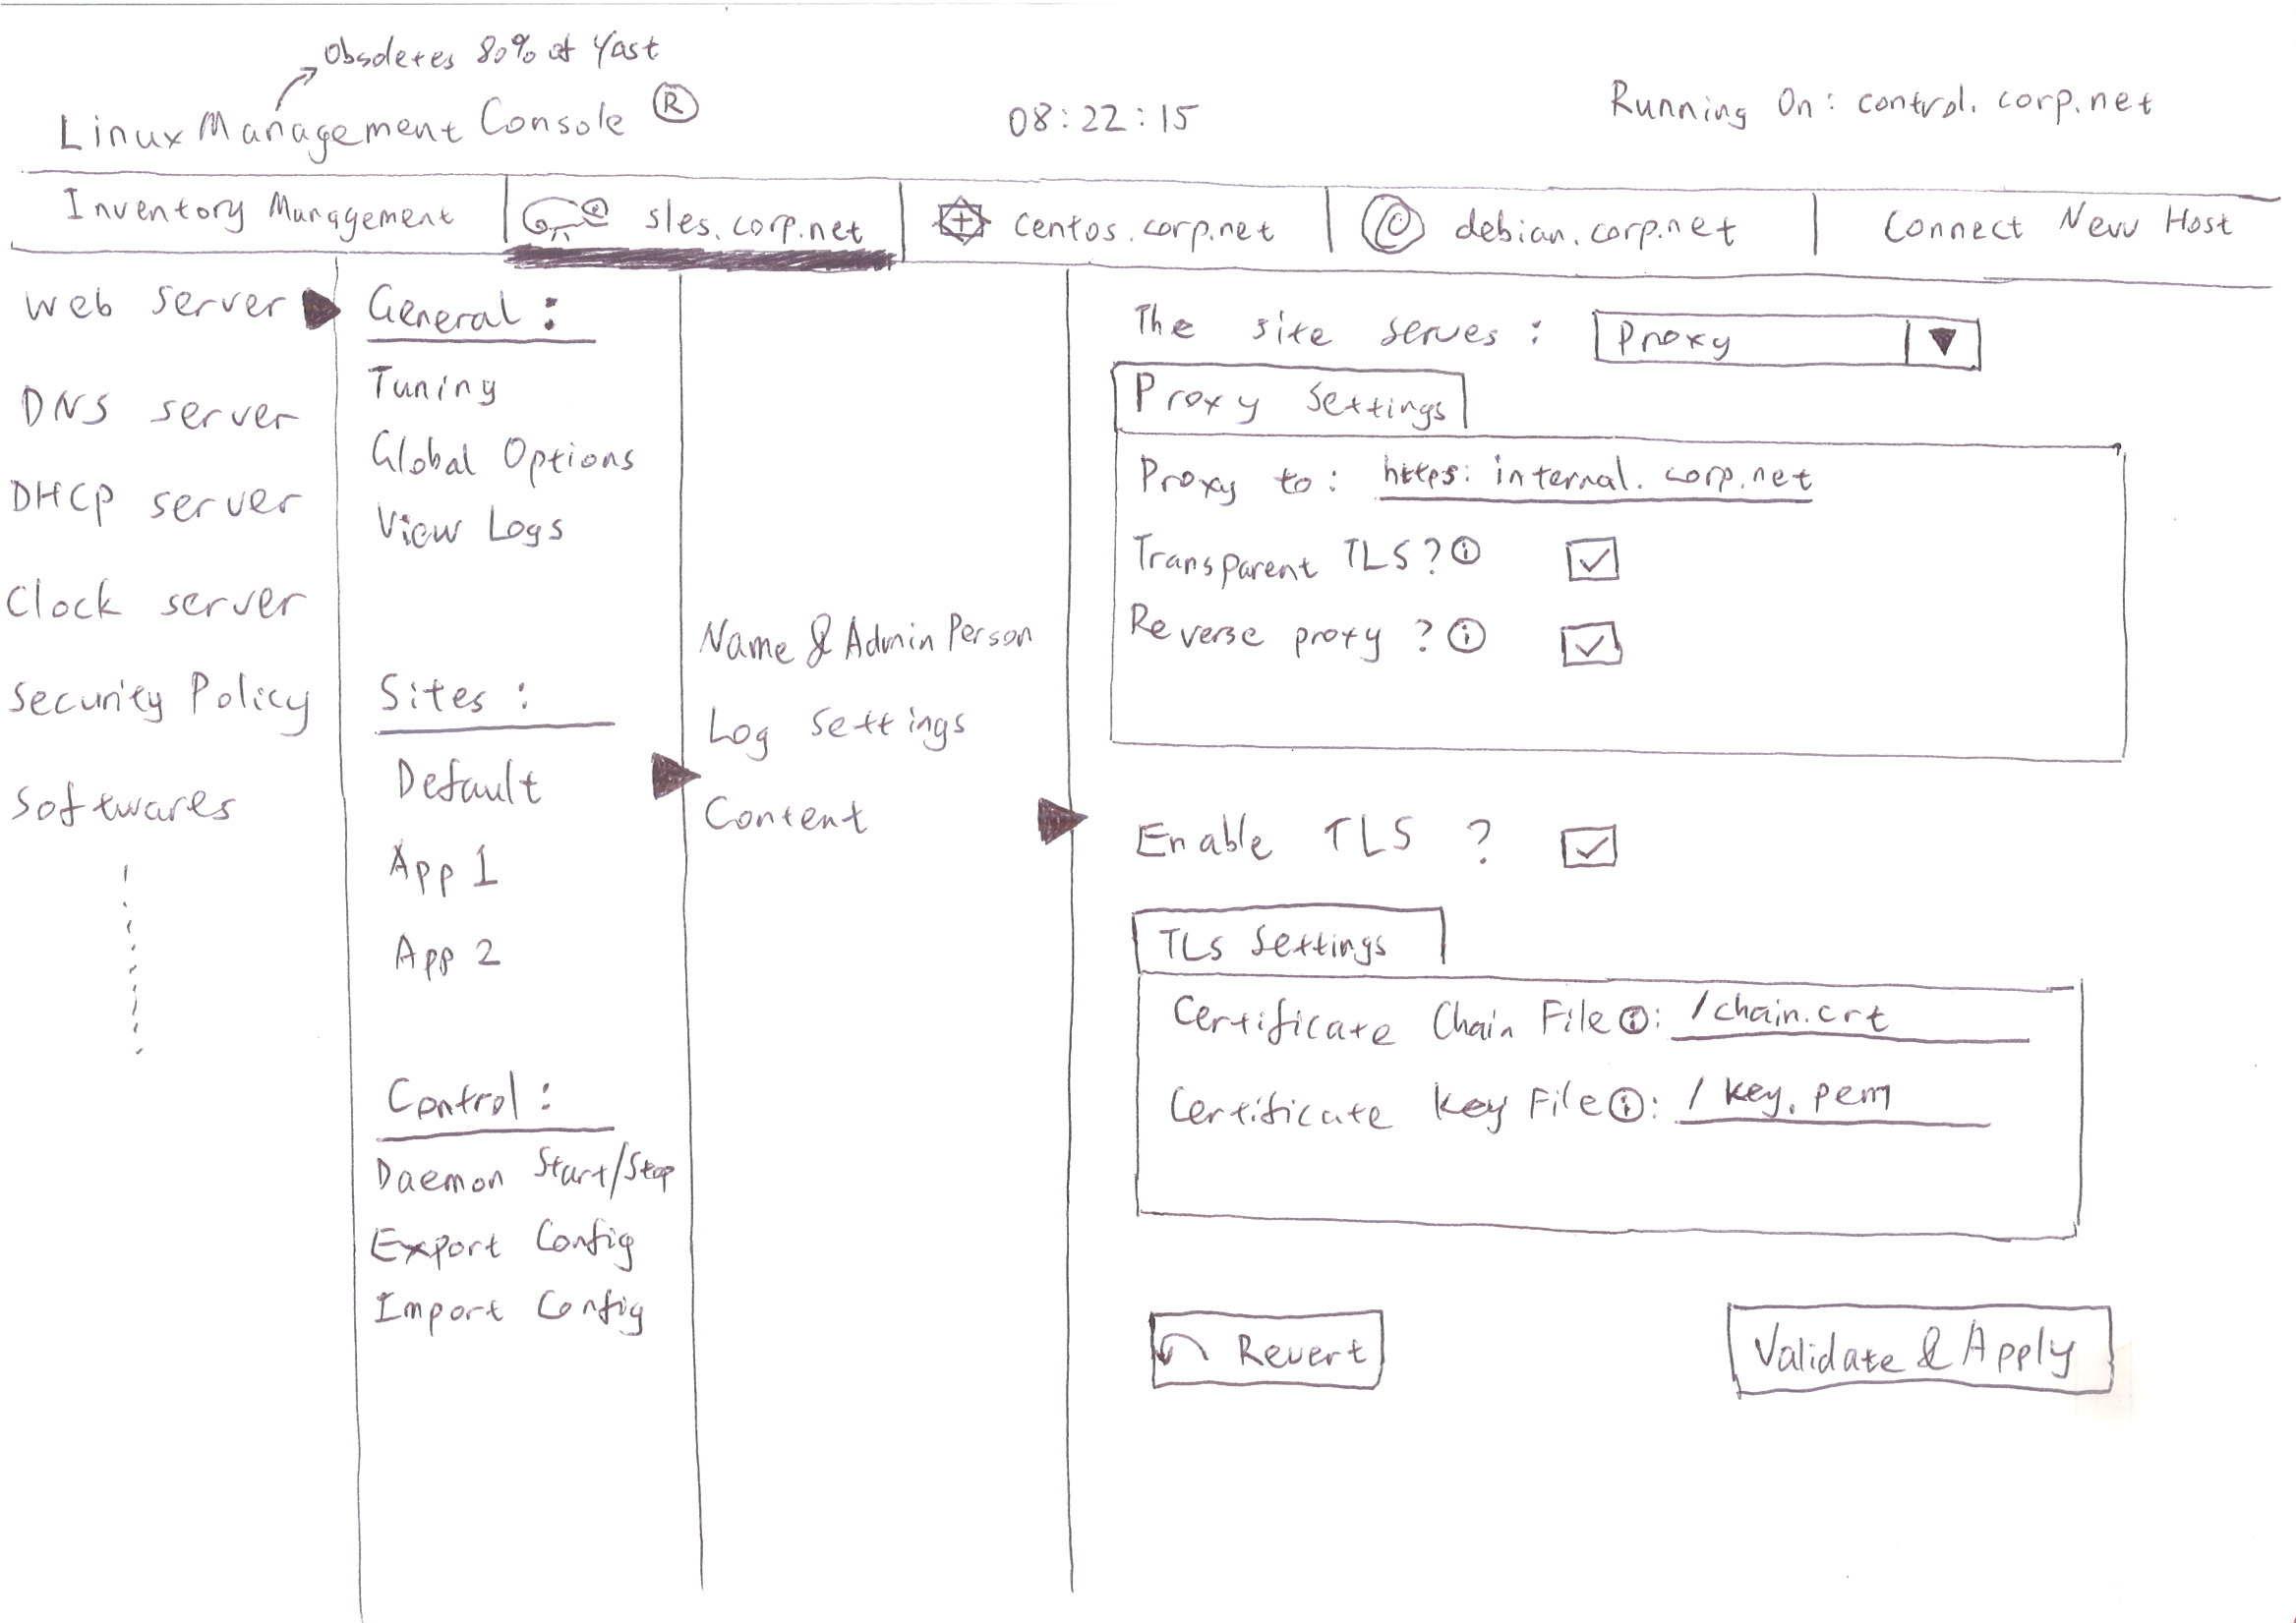 Obsoletes 80% of Yast
Linux Management Console ®
08:22:15
Running On: control.corp.net
Inventory Management
sles.corp.net
centos.corp.net
debian.corp.net
Connect New Host
Web server
DNS server
DHCP server
Clock server
Security Policy
Softwares
General:
Tuning
Global Options
View Logs
Sites:
Default
App 1
App 2
Control:
Daemon Start/Stop
Export Config
Import Config
Name & Admin Person
Log Settings
Content
The site serves: Proxy
Proxy Settings
Proxy to: https: internal.corp.net
Transparent TLS? i
Reverse proxy? i
Enable TLS ?
TLS Settings
Certificate Chain File i: /chain.crt
Certificate Key File i: /key.pem
Revert
Validate & Apply